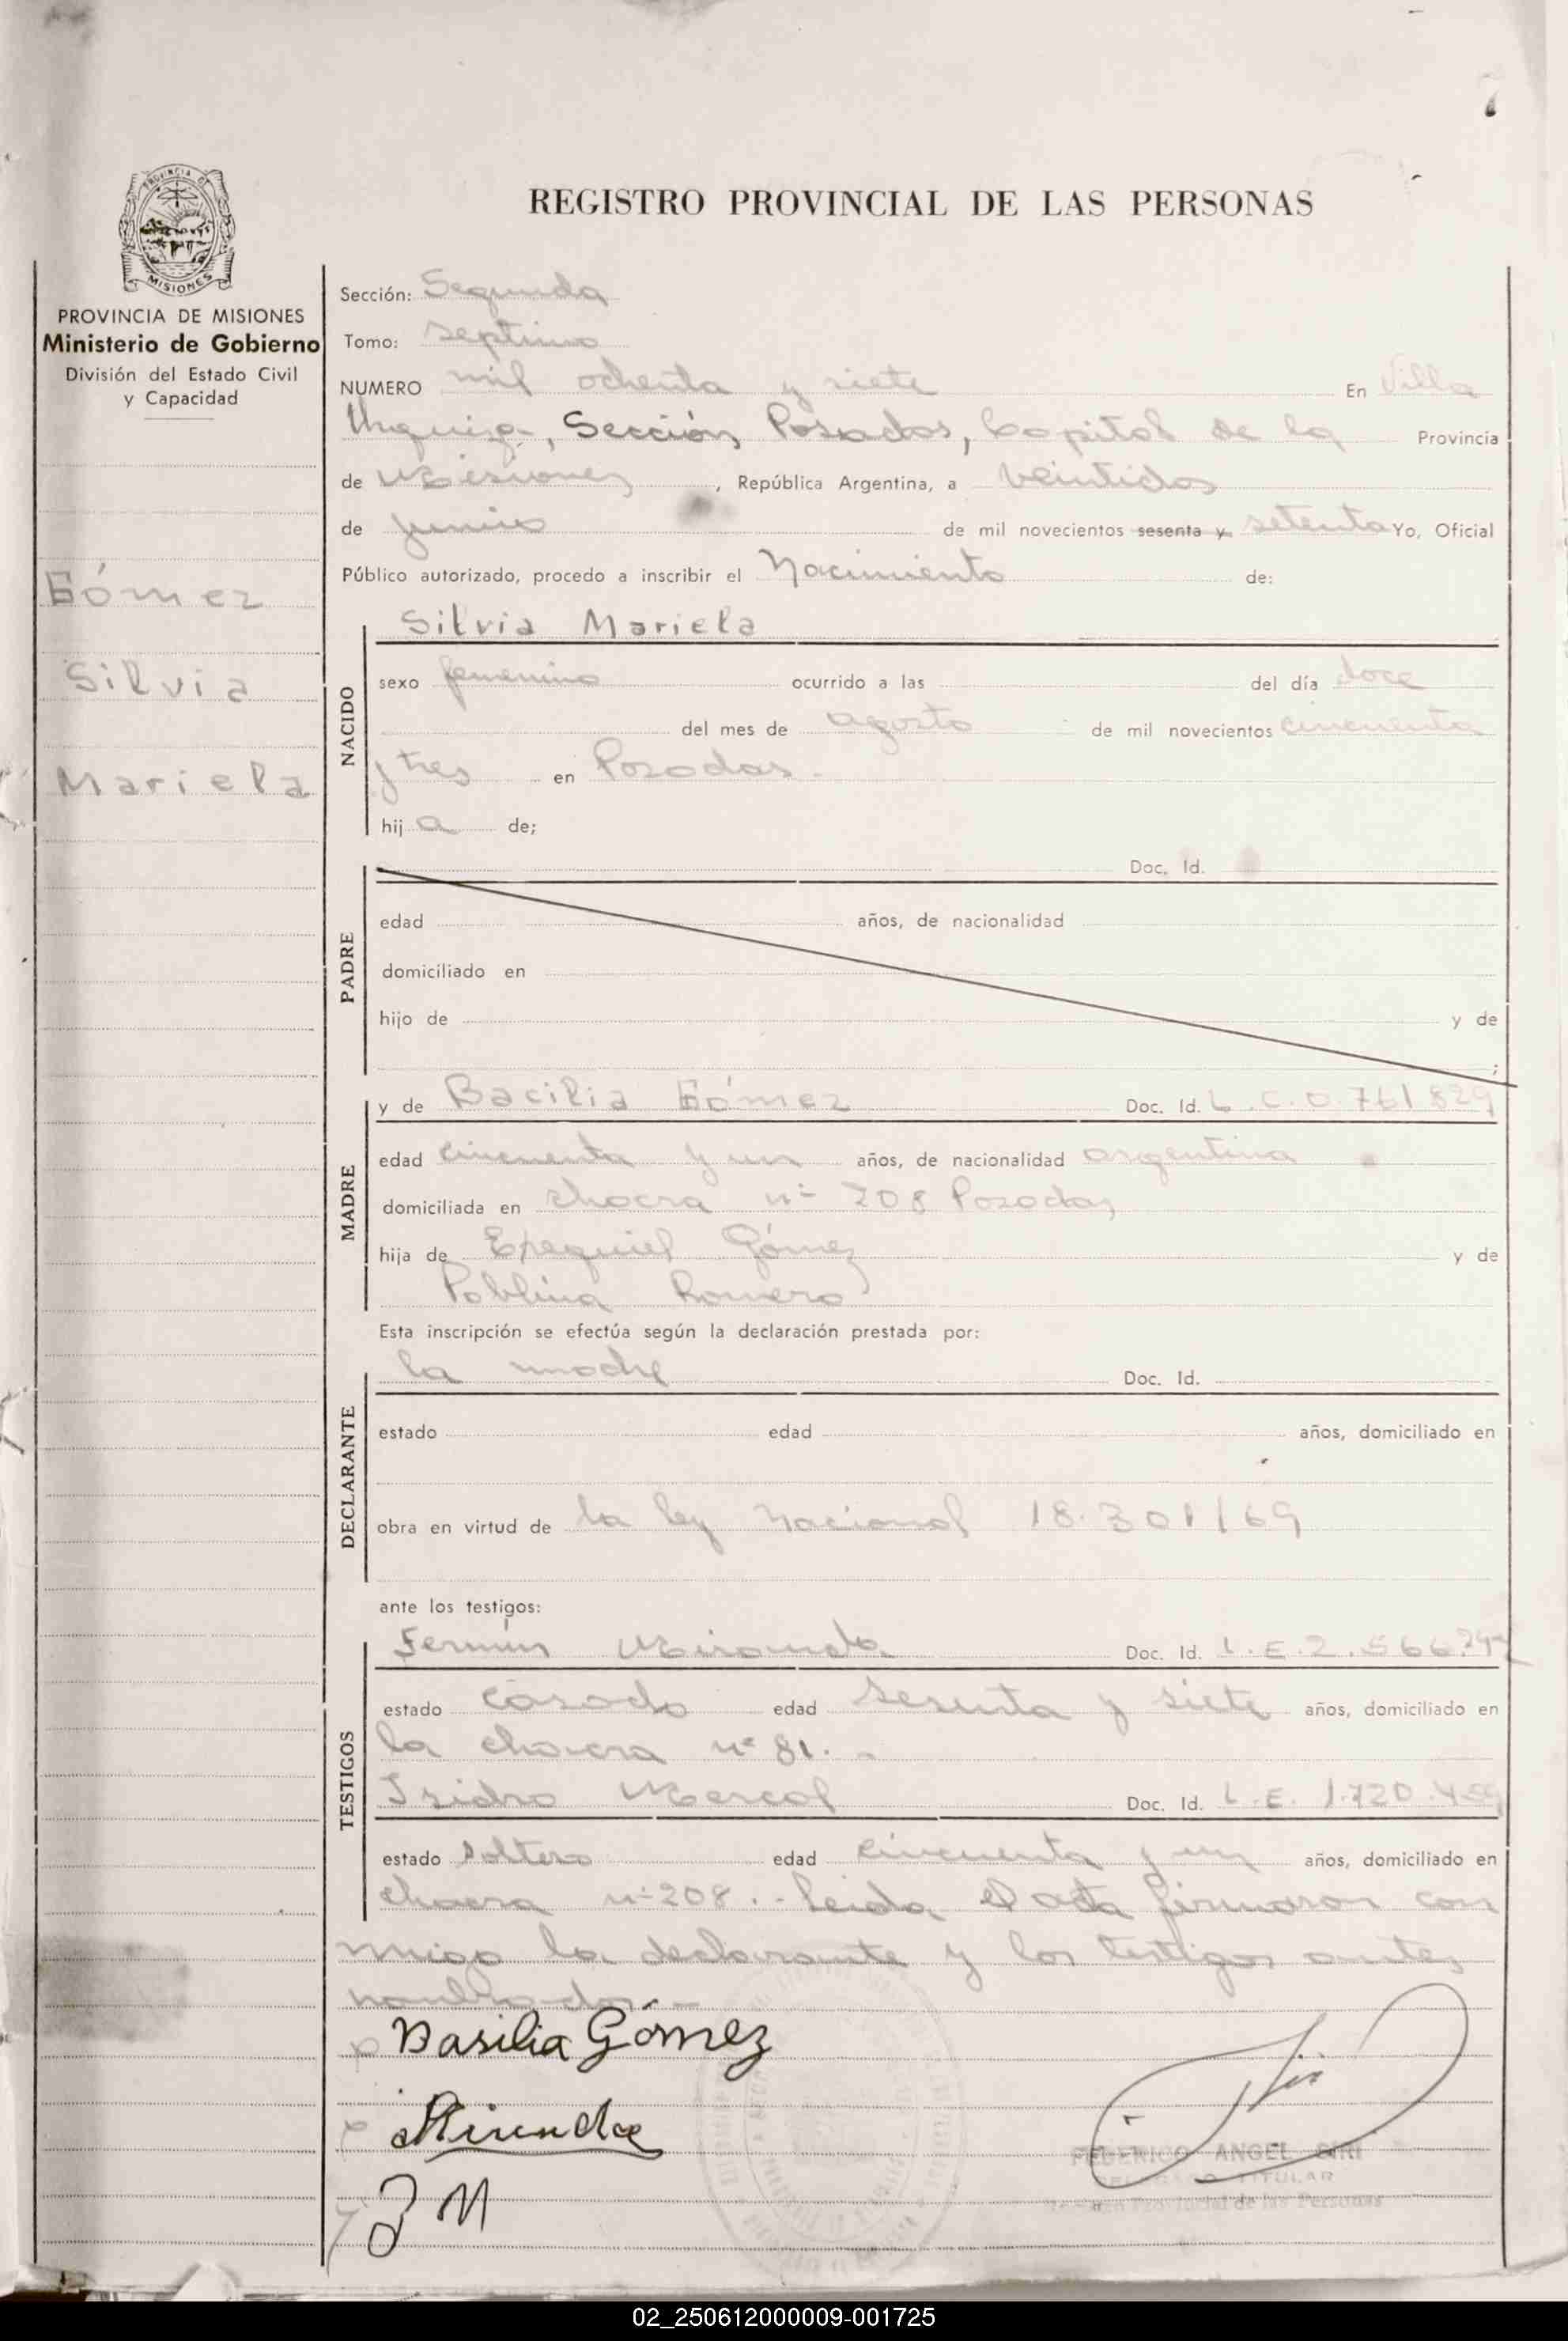 7
REGISTRO PROVINCIAL DE LAS PERSONAS
PROVINCIA DE MISIONES
Ministerio de Gobierno
División del Estado Civil
y Capacidad
Gómez
Silvia
Mariela
Sección: Segunda
Tomo: septimo
NUMERO mil ochenta y siete En Villa
Urquiza, Sección Posadas, Capital de la Provincia
de Misiones, República Argentina, a veintidos
de junio de mil novecientos sesenta y setenta Yo, Oficial
Público autorizado, procedo a inscribir el Nacimiento de:
NACIDO
Silvia Mariela
sexo femenino ocurrido a las del día doce
del mes de agosto de mil novecientos cincuenta
y tres en Posadas.
hij a de;
PADRE
Doc. Id.
edad años, de nacionalidad
domiciliado en
hijo de y de
;
MADRE
y de Bacilia Gómez Doc. Id. L.C.0.761.829
edad cincuenta y un años, de nacionalidad argentina
domiciliada en chacra nº 208 Posadas
hija de Ezequiel Gómez y de
Poblina Romero
Esta inscripción se efectúa según la declaración prestada por:
DECLARANTE
la madre Doc. Id.
estado edad años, domiciliado en
obra en virtud de la ley Nacional 18.301/69
ante los testigos:
TESTIGOS
Fermín Miranda Doc. Id. L.E.2.566.
estado casado edad sesenta y siete años, domiciliado en
la chacra nº 81.-
Isidro Marcol Doc. Id. L.E. 1.720.
estado soltero edad cincuenta y un años, domiciliado en
chacra nº 208.- Leida el acta firmaron con
migo la declarante y los testigos antes
nombrados.-
Basilia Gómez
Miranda
J M
FEDERICO ANGEL SIRI
DELEGADO TITULAR
Registro Provincial de las Personas
02_250612000009-001725